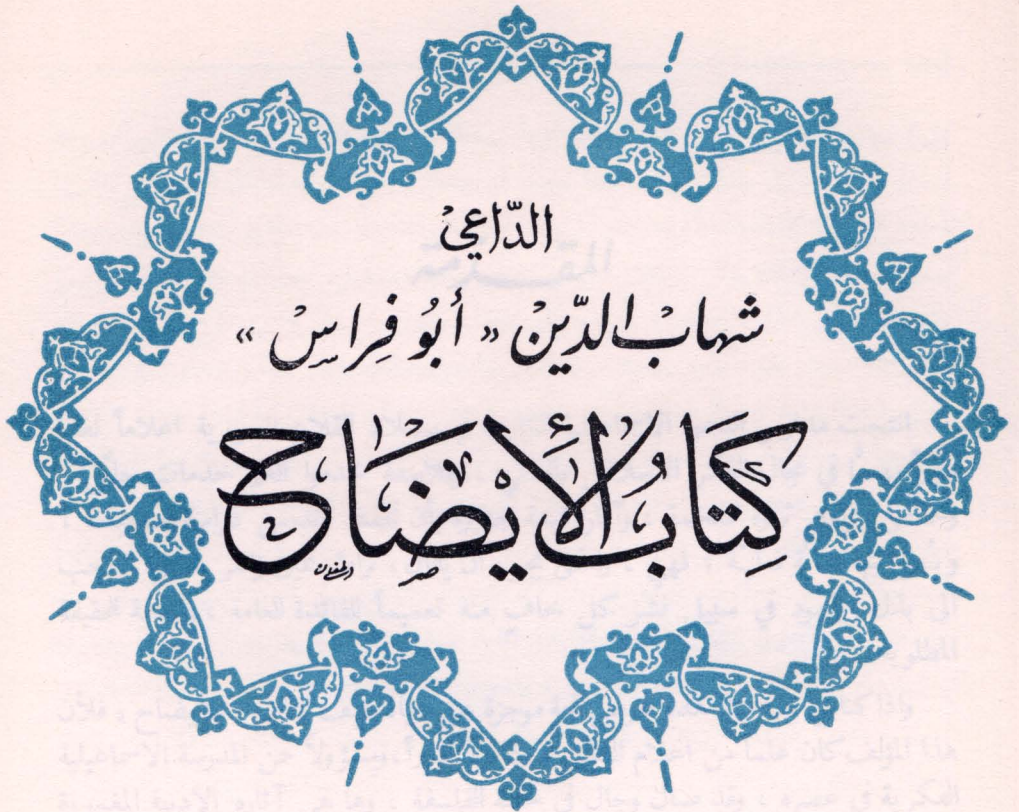 الدّاعِيْ
شهابْ الدّينْ « أبُو فِراسِْ »
كِتَابُ الأَيضَاحْ